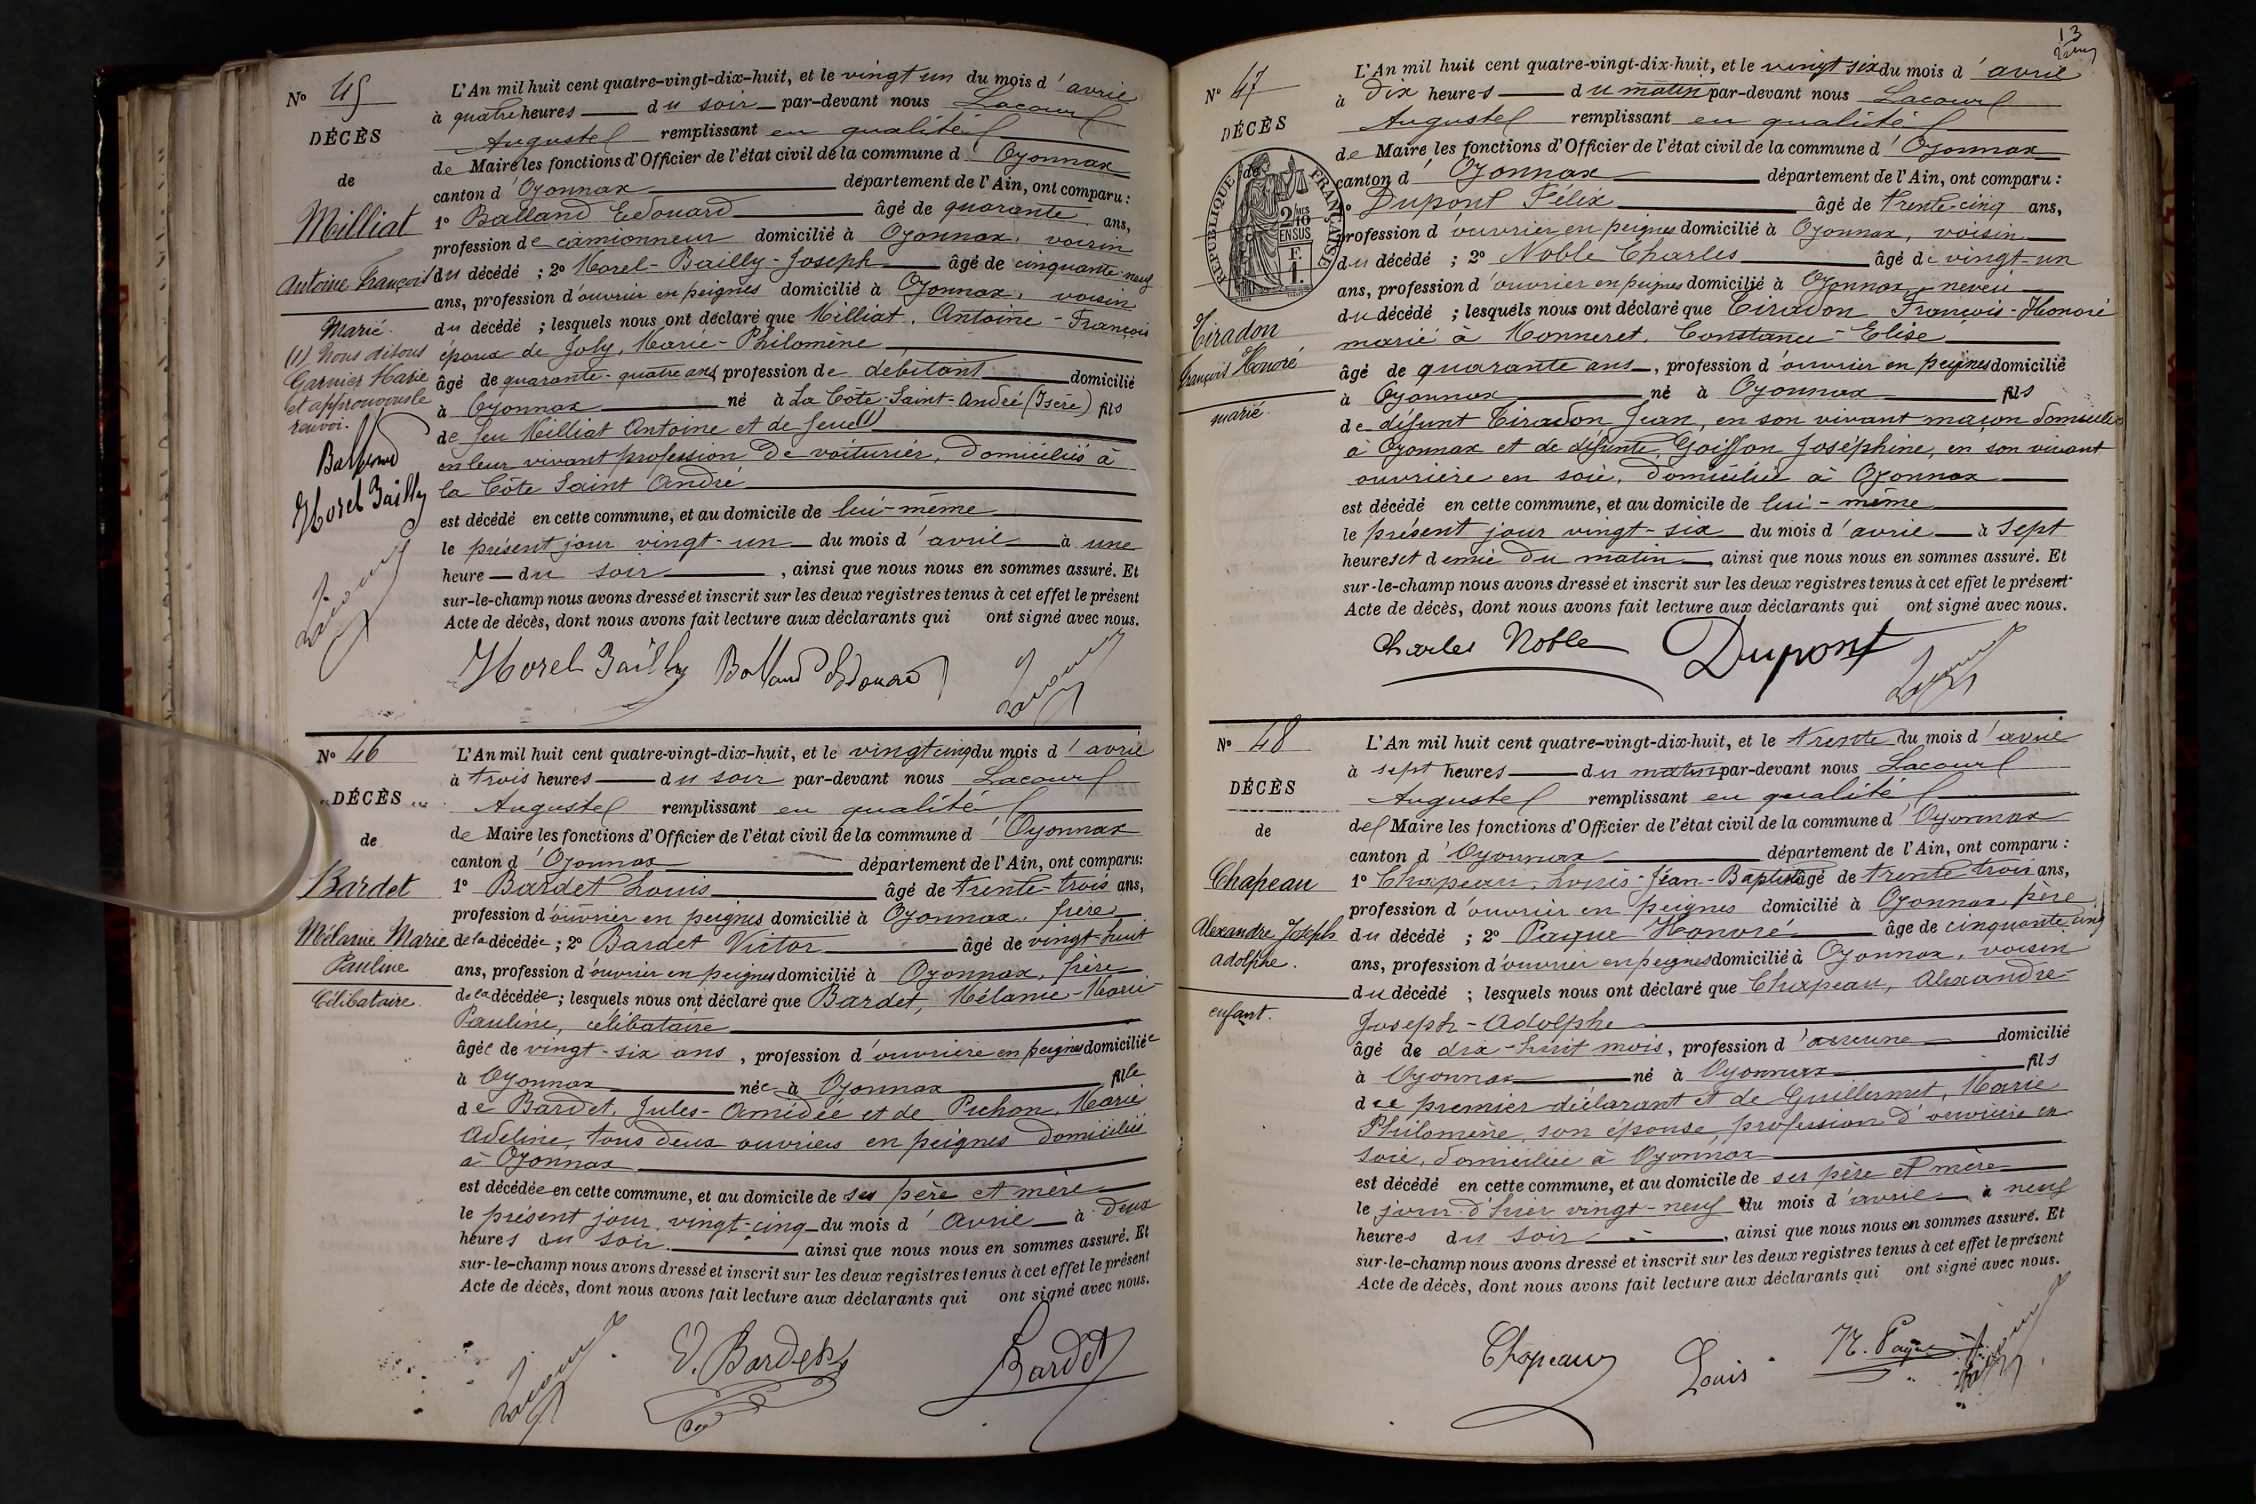 N° 45
DÉCÈS
de
Milliat
Antoine François
Marié.
(1) Nous disons
Garnier Marie
et approuvons le
renvoi.
Balland
Morel Bailly
Lacour
L'An mil huit cent quatre-vingt-dix-huit, et le vingt un du mois d'avril
à quatre heures du soir par-devant nous Lacour
Auguste remplissant en qualité
de Maire les fonctions d'Officier de l'état civil de la commune d'Oyonnax
canton d'Oyonnax département de l'Ain, ont comparu :
1° Balland Edouard âgé de quarante ans,
profession de camionneur domicilié à Oyonnax, voisin
du décédé ; 2° Morel-Bailly-Joseph âgé de cinquante-neuf
ans, profession d'ouvrier en peignes domicilié à Oyonnax, voisin
du décédé ; lesquels nous ont déclaré que Milliat, Antoine-François
époux de Joly, Marie-Philomène
âgé de quarante-quatre ans, profession de débitant domicilié
à Oyonnax né à La Côte-Saint-André (Isère) fils
de feu Milliat Antoine et de feue (1)
en leur vivant profession de voiturier, domiciliés à
la Côte Saint André
est décédé en cette commune, et au domicile de lui-même
le présent jour vingt-un du mois d'avril à une
heure du soir, ainsi que nous nous en sommes assuré. Et
sur-le-champ nous avons dressé et inscrit sur les deux registres tenus à cet effet le présent
Acte de décès, dont nous avons fait lecture aux déclarants qui ont signé avec nous.
Morel Bailly Balland Edouard Lacour
N° 46
DÉCÈS
de
Bardet
Mélanie Marie
Pauline
Célibataire.
L'An mil huit cent quatre-vingt-dix-huit, et le vingt cinq du mois d'avril
à trois heures du soir par-devant nous Lacour
Auguste remplissant en qualité
de Maire les fonctions d'Officier de l'état civil de la commune d'Oyonnax
canton d'Oyonnax département de l'Ain, ont comparu:
1° Bardet Louis âgé de trente-trois ans,
profession d'ouvrier en peignes domicilié à Oyonnax, frère
de la décédée ; 2° Bardet Victor âgé de vingt-huit
ans, profession d'ouvrier en peignes domicilié à Oyonnax, frère
de la décédée ; lesquels nous ont déclaré que Bardet, Mélanie-Marie
Pauline, célibataire
âgée de vingt-six ans, profession d'ouvrière en peignes domiciliée
à Oyonnax née à Oyonnax fille
de Bardet, Jules-Amédée et de Puchon, Marie
Adeline, tous deux ouvriers en peignes domiciliés
à Oyonnax
est décédée en cette commune, et au domicile de ses père et mère
le présent jour vingt-cinq du mois d'avril à deux
heures du soir. ainsi que nous nous en sommes assuré. Et
sur-le-champ nous avons dressé et inscrit sur les deux registres tenus à cet effet le présent
Acte de décès, dont nous avons fait lecture aux déclarants qui ont signé avec nous.
Lacour V. Bardet Bardet
13
N° 47
DÉCÈS
de
RÉPUBLIQUE FRANÇAISE
2/10 EN SUS
1 F.
Tiradon
François Honoré
marié.
L'An mil huit cent quatre-vingt-dix-huit, et le vingt six du mois d'avril
à dix heures du matin par-devant nous Lacour
Auguste remplissant en qualité
de Maire les fonctions d'Officier de l'état civil de la commune d'Oyonnax
canton d'Oyonnax département de l'Ain, ont comparu :
1° Dupont Félix âgé de trente-cinq ans,
profession d'ouvrier en peignes domicilié à Oyonnax, voisin
du décédé ; 2° Noble Charles âgé de vingt-un
ans, profession d'ouvrier en peignes domicilié à Oyonnax, neveu
du décédé ; lesquels nous ont déclaré que Tiradon François-Honoré
marié à Monneret, Constance-Elise
âgé de quarante ans, profession d'ouvrier en peignes domicilié
à Oyonnax né à Oyonnax fils
de défunt Tiradon Jean, en son vivant maçon domicilié
à Oyonnax et de défunte Goiffon Joséphine, en son vivant
ouvrière en soie, domiciliée à Oyonnax
est décédé en cette commune, et au domicile de lui-même
le présent jour vingt-six du mois d'avril à sept
heures et demie du matin, ainsi que nous nous en sommes assuré. Et
sur-le-champ nous avons dressé et inscrit sur les deux registres tenus à cet effet le présent
Acte de décès, dont nous avons fait lecture aux déclarants qui ont signé avec nous.
Charles Noble Dupont Lacour
N° 48
DÉCÈS
de
Chapeau
Alexandre Joseph
Adolphe.
enfant.
L'An mil huit cent quatre-vingt-dix-huit, et le trente du mois d'avril
à sept heures du matin par-devant nous Lacour
Auguste remplissant en qualité
de Maire les fonctions d'Officier de l'état civil de la commune d'Oyonnax
canton d'Oyonnax département de l'Ain, ont comparu :
1° Chapeau, Louis-Jean-Baptiste âgé de trente trois ans,
profession d'ouvrier en peignes domicilié à Oyonnax père
du décédé ; 2° Paque Honoré âgé de cinquante cinq
ans, profession d'ouvrier en peignes domicilié à Oyonnax, voisin
du décédé ; lesquels nous ont déclaré que Chapeau, Alexandre-
Joseph-Adolphe
âgé de dix-huit mois, profession d'aucune domicilié
à Oyonnax né à Oyonnax fils
du premier déclarant et de Guillermet, Marie
Philomène, son épouse, profession d'ouvrière en
soie, domiciliée à Oyonnax
est décédé en cette commune, et au domicile de ses père et mère
le jour d'hier vingt-neuf du mois d'avril à neuf
heures du soir, ainsi que nous nous en sommes assuré. Et
sur-le-champ nous avons dressé et inscrit sur les deux registres tenus à cet effet le présent
Acte de décès, dont nous avons fait lecture aux déclarants qui ont signé avec nous.
Chapeau Louis H. Paque Lacour